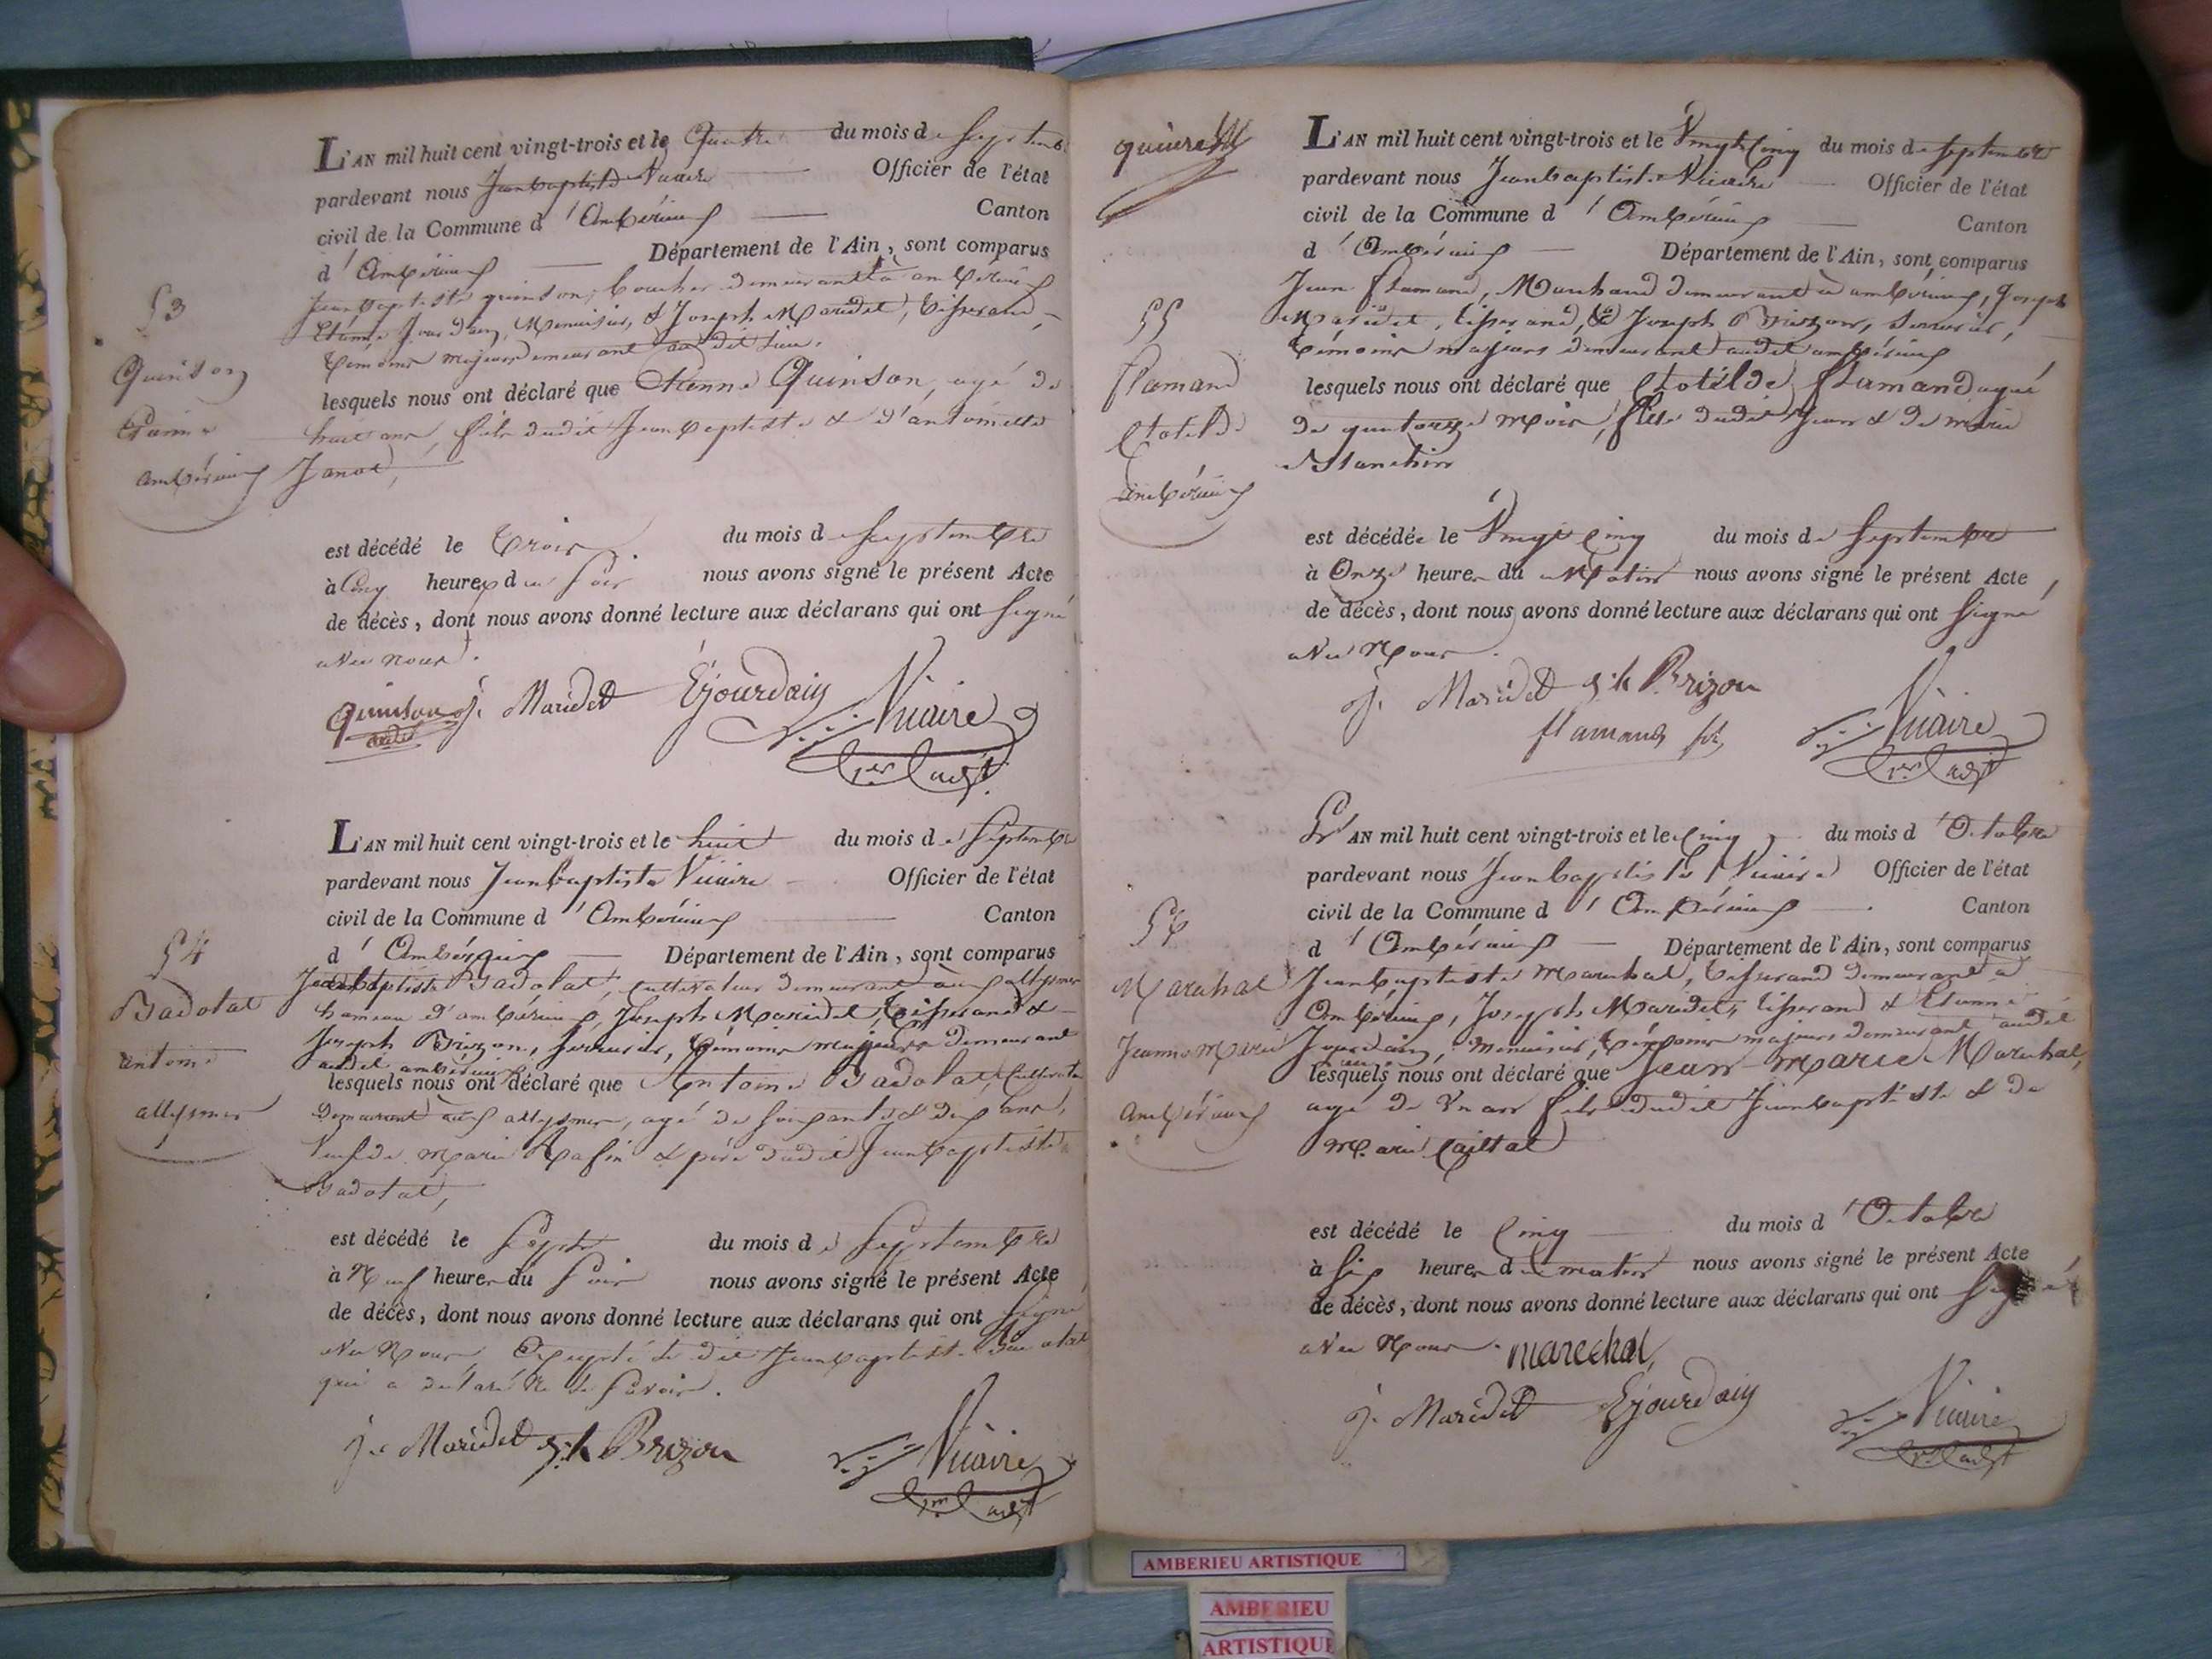 L'AN mil huit cent vingt-trois et le Quatre du mois de Septembre
pardevant nous Jeanbaptiste Vicaire Officier de l'état
civil de la Commune d'Ambérieux Canton
d'Ambérieux Département de l'Ain, sont comparus
Jeanbaptiste quinson, boucher demeurant à ambérieux
Etienne Jourdain, Menuisier, & Joseph Maridet, tisserand,
témoins majeurs demeurant au dit lieu.
lesquels nous ont déclaré que Etienne Quinson, agé de
huit ans, fils dudit Jeanbaptiste & d'antoinette
Janot,
53
Quinson
Etienne
ambérieux
est décédé le trois du mois de Septembre
à Cinq heures du Soir nous avons signé le présent Acte
de décès, dont nous avons donné lecture aux déclarans qui ont Signé
avec nous.
quinson J. Maridet E jourdain Vicaire
L'AN mil huit cent vingt-trois et le huit du mois de Septembre
pardevant nous Jeanbaptiste Vicaire Officier de l'état
civil de la Commune d'Ambérieux Canton
d'Ambérieux Département de l'Ain, sont comparus
Jeanbaptiste Badolat, cultivateur demeurant aux allymes
hameau d'ambérieux, Joseph Maridet, tisserand &
Joseph Brizon, Serrurier, témoins majeurs demeurant
audit ambérieux
lesquels nous ont déclaré que Antoine Badolat, Cultivateur
demeurant aux allymes, agé de soixante & dix ans,
veuf de marie & père dudit Jeanbaptiste
Badolat,
54
Badolat
antoine
allymes
est décédé le Sept du mois de Septembre
à Neuf heures du Soir nous avons signé le présent Acte
de décès, dont nous avons donné lecture aux déclarans qui ont Signé
avec Nous, Excepté le dit Jeanbaptiste Badolat
qui a déclaré ne le Savoir.
J. Maridet Brizon Vicaire
L'AN mil huit cent vingt-trois et le Vingt Cinq du mois de Septembre
pardevant nous Jeanbaptiste Vicaire Officier de l'état
civil de la Commune d'Ambérieux Canton
d'Ambérieux Département de l'Ain, sont comparus
Jean flamand, Marchand demeurant à ambérieux, Joseph
Maridet, tisserand, & Joseph Brizon, Serrurier,
témoins majeurs demeurant audit ambérieux
lesquels nous ont déclaré que Clotilde flamand agée
de quatorze mois, fille dudit Jean & de marie
Blanchin
55
flamand
Clotilde
ambérieux
est décédée le Vingt Cinq du mois de Septembre
à Onze heures du Matin nous avons signé le présent Acte
de décès, dont nous avons donné lecture aux déclarans qui ont Signé
avec Nous.
J. Maridet Brizon
flamand Vicaire
L'AN mil huit cent vingt-trois et le Cinq du mois d'Octobre
pardevant nous Jeanbaptiste Vicaire Officier de l'état
civil de la Commune d'Ambérieux Canton
d'Ambérieux Département de l'Ain, sont comparus
Jeanbaptiste Marechal, tisserand demeurant à
Ambérieux, Joseph Maridet, tisserand & Etienne
Jourdain, menuisier, témoins majeurs demeurant audit
lieu
lesquels nous ont déclaré que Jean-Marie Marechal,
agé de Un an fils dudit Jeanbaptiste & de
Marie Caillat
56
Marechal
Jeanne Marie
ambérieux
est décédé le Cinq du mois d'Octobre
à Six heures du matin nous avons signé le présent Acte
de décès, dont nous avons donné lecture aux déclarans qui ont Signé
avec Nous.
marechal,
J. Maridet E jourdain Vicaire
AMBERIEU ARTISTIQUE
AMBERIEU
ARTISTIQUE